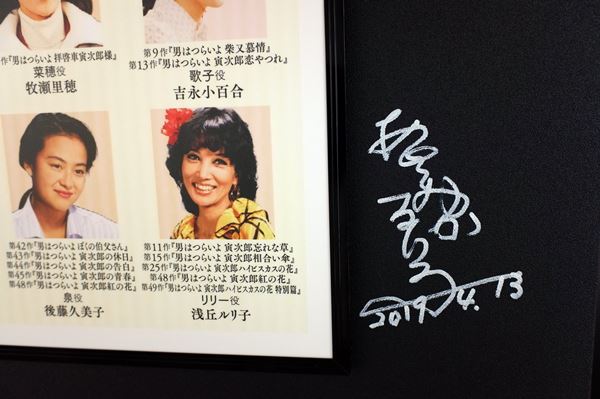 作『男はつらいよ 拝啓車寅次郎様』
菜穂役
牧瀬里穂
第9作『男はつらいよ 柴又慕情』
第13作『男はつらいよ 寅次郎恋やつれ』
歌子役
吉永小百合
第42作『男はつらいよ ぼくの伯父さん』
第43作『男はつらいよ 寅次郎の休日』
第44作『男はつらいよ 寅次郎の告白』
第45作『男はつらいよ 寅次郎の青春』
第48作『男はつらいよ 寅次郎紅の花』
泉役
後藤久美子
第11作『男はつらいよ 寅次郎忘れな草』
第15作『男はつらいよ 寅次郎相合い傘』
第25作『男はつらいよ 寅次郎ハイビスカスの花』
第48作『男はつらいよ 寅次郎紅の花』
第49作『男はつらいよ 寅次郎ハイビスカスの花 特別篇』
リリー役
浅丘ルリ子
2019. 4. 13